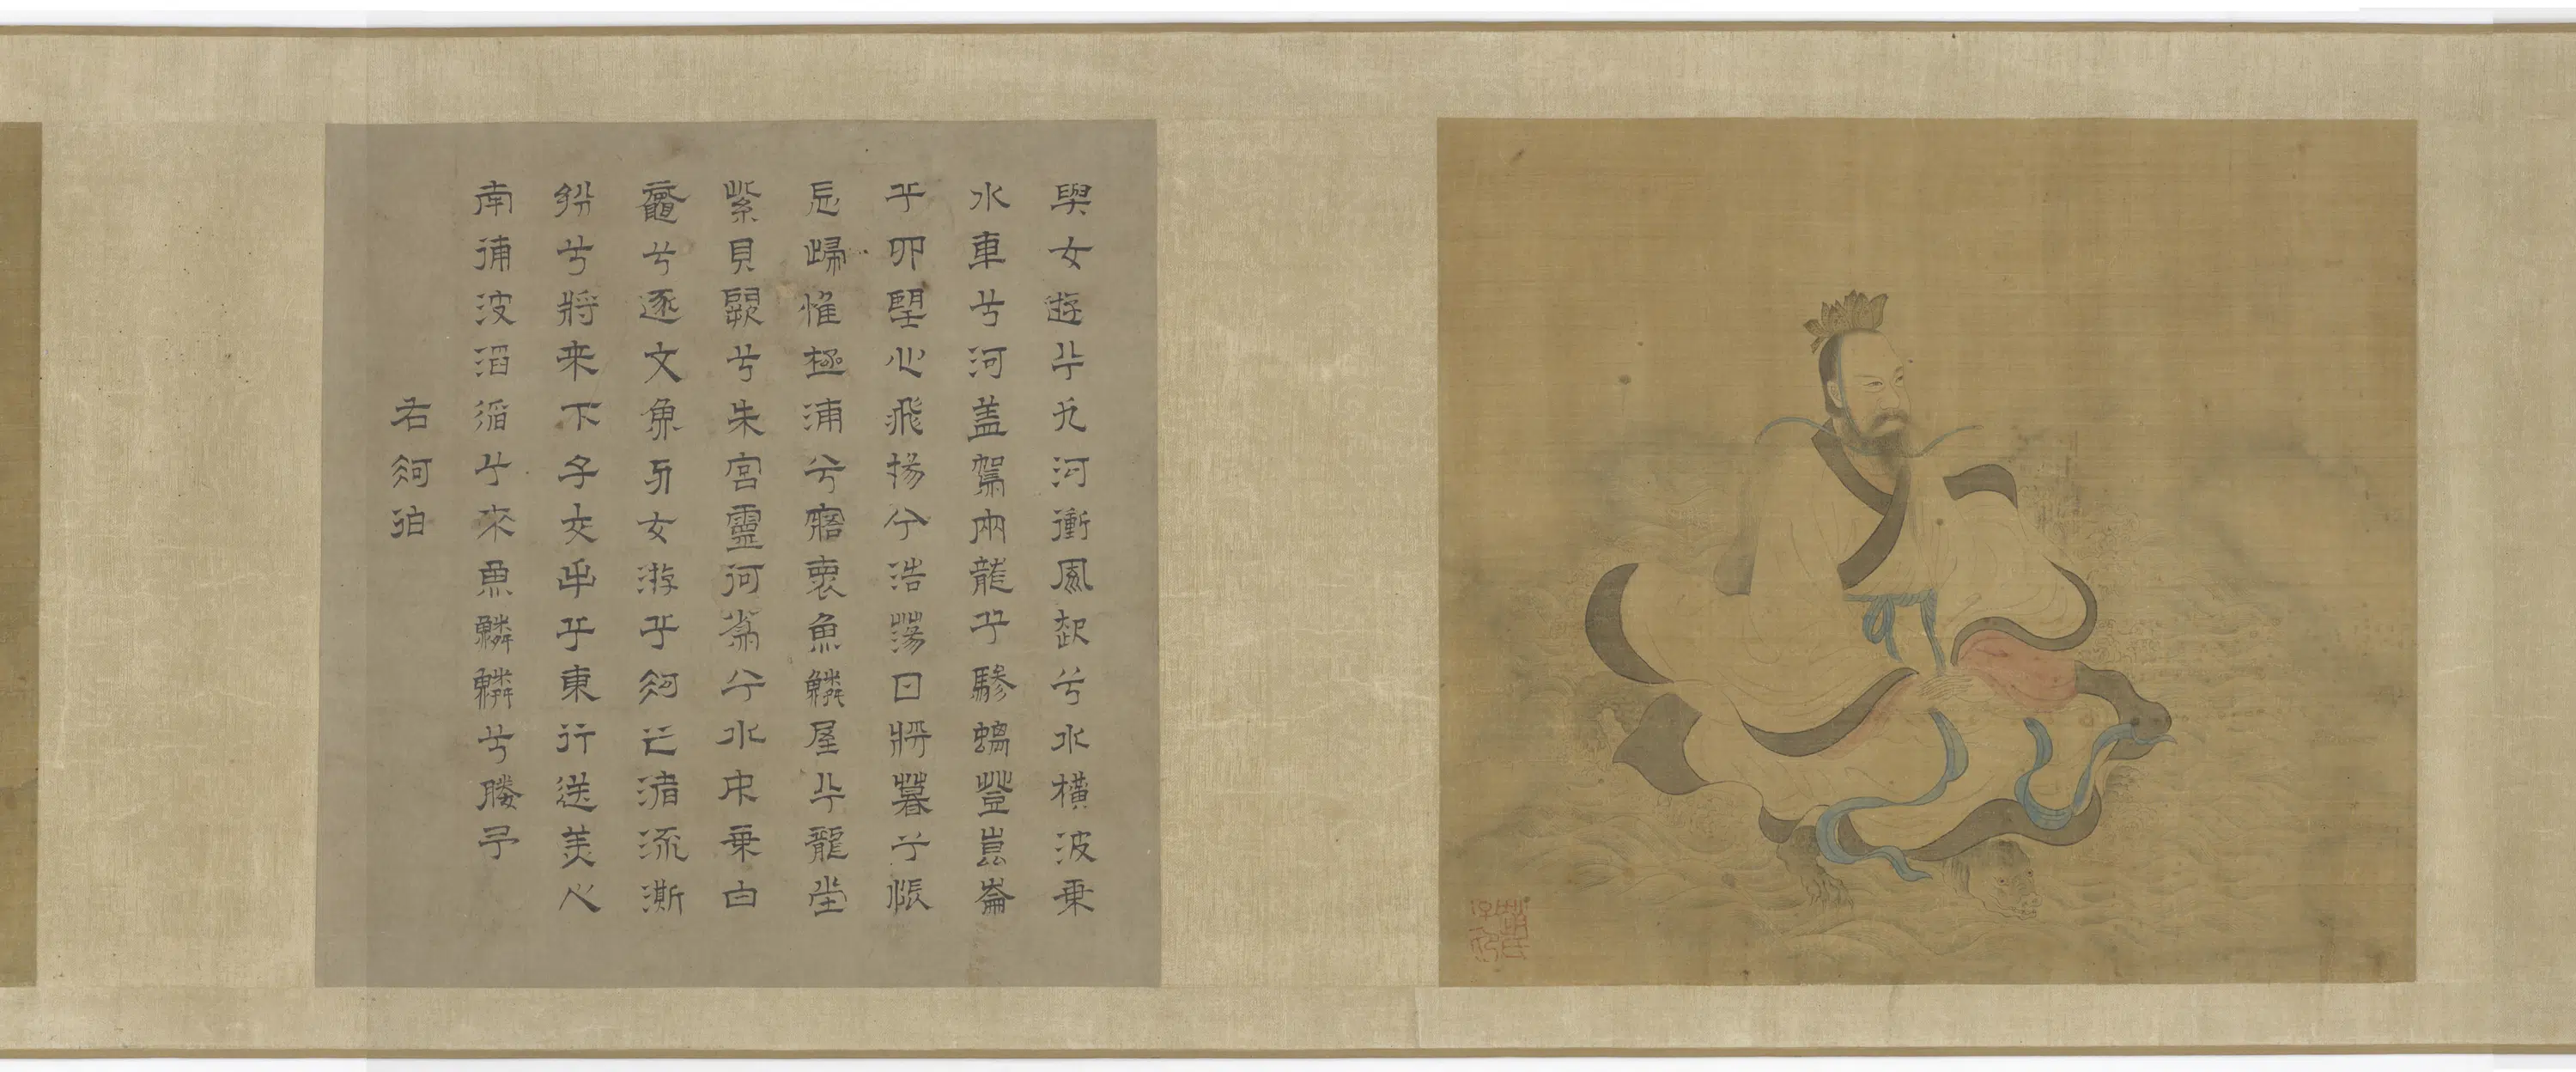 與女遊兮九河衝風起兮水橫波乗
水車兮河盖駕兩龍兮驂螭登崑崙
兮四望心飛揚兮浩蕩日將暮兮悵
忘歸惟極浦兮寤褱魚鱗屋兮龍堂
紫貝闕兮朱宮靈何為兮水中乗白
黿兮逐文魚與女游兮河之渚流澌
紛兮將来下子交手兮東行送美人
南浦波滔滔兮來魚鱗鱗兮媵予
右河伯